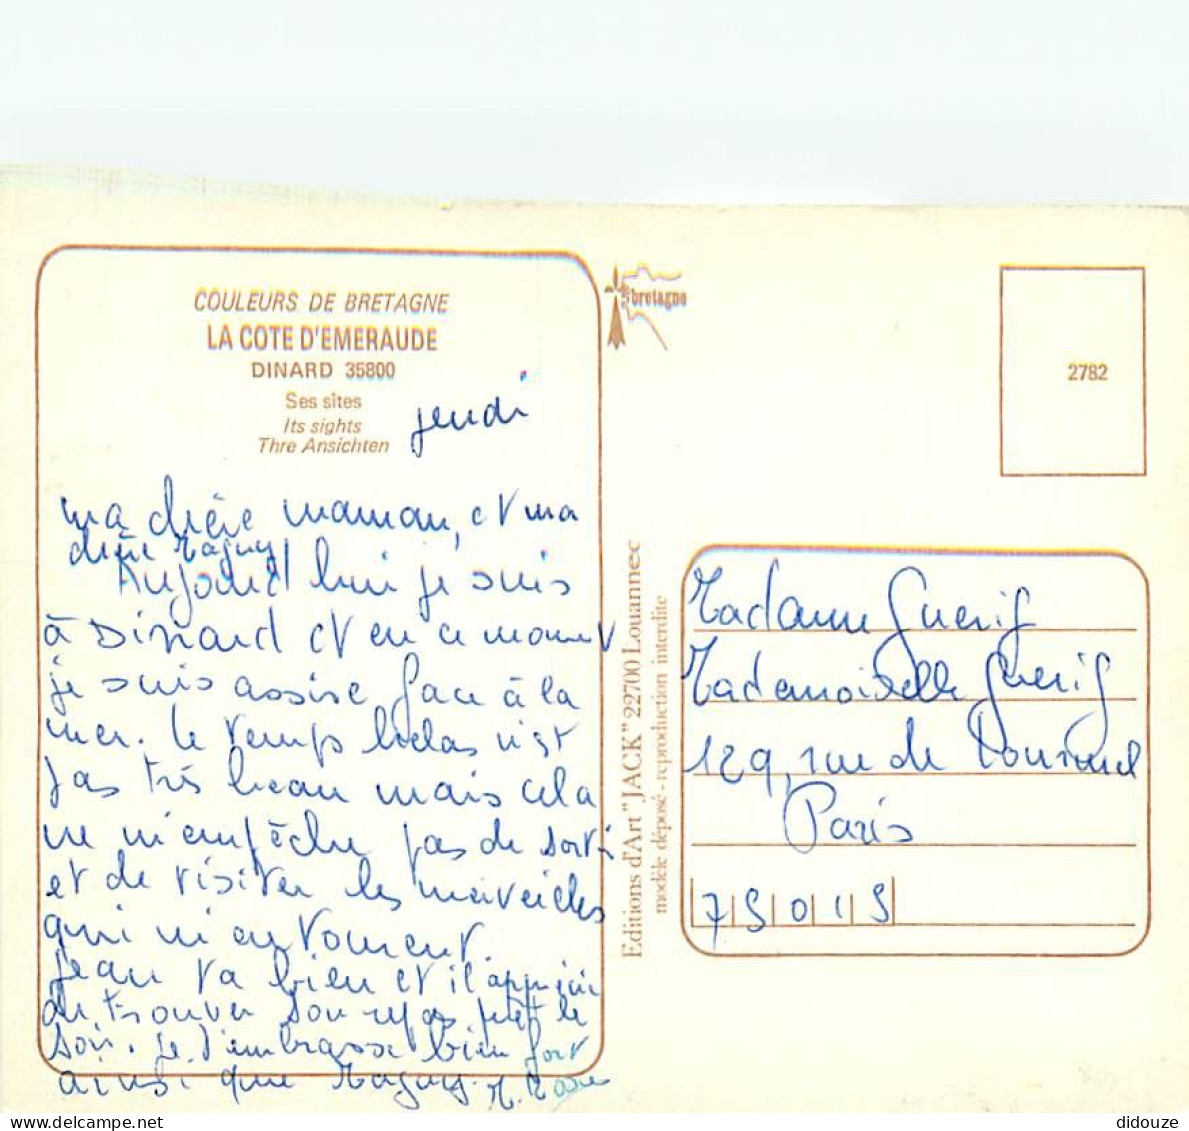 COULEURS DE BRETAGNE
LA COTE D'EMERAUDE
DINARD 35800
Ses sîtes
Its sights
Thre Ansichten
jeudi
ma chère maman, et ma
chère Maguy
Aujourd'hui je suis
à Dinard et en ce moment
je suis assise face à la
mer. le temps hélas n'est
pas très beau mais cela
ne m'empêche pas de sortir
et de visiter les merveilles
qui m'entourent.
Jean va bien et il apprécie
de trouver son repas prêt le
soir. je t'embrasse bien fort
ainsi que Maguy.
bretagne
2782
Editions d'Art "JACK" 22700 Louannec
modèle déposé - reproduction interdite
Madame Guerif
Mademoiselle Guerif
129, rue de
Paris
75015
didouze